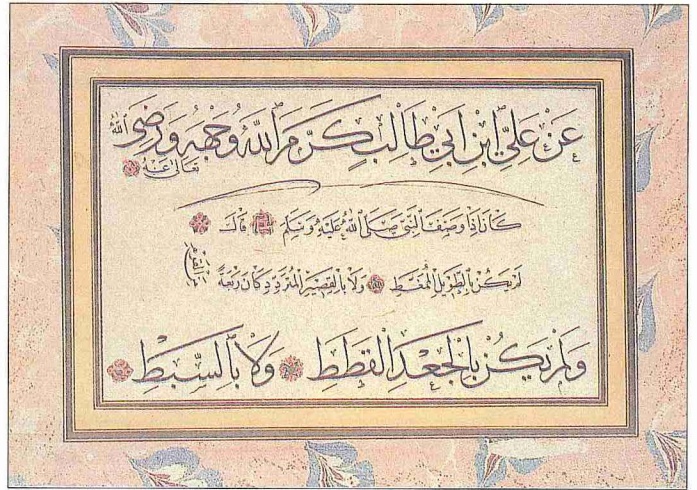 عَنْ عَلِيِّ ابْنِ اَبِي طَالِبٍ كَرَّمَ اللّٰهُ وَجْهَهُ وَرَضِيَ اللّٰهُ
تَعَالٰى عَنْهُ
كَانَ اِذَا وَصَفَ النَّبِيَّ صَلَّى اللّٰهُ عَلَيْهِ وَسَلَّمَ قَالَ
لَمْ يَكُنْ بِالطَّوِيلِ الْمُمَّغِطِ وَلَا بِالْقَصِيرِ الْمُتَرَدِّدِ كَانَ رَبْعَةً
مِنَ الْقَوْمِ
وَلَمْ يَكُنْ بِالْجَعْدِ الْقَطَطِ وَلَا بِالسَّبِطِ